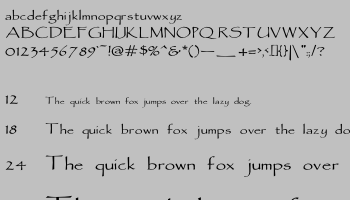 abcdefghijklmnopqrstuvwxyz
ABCDEFGHIJKLMNOPQRSTUVWXYZ
0123456789`~!@#$%^&*()-_+=>,<[]{}|\":;/?
12 The quick brown fox jumps over the lazy dog.
18 The quick brown fox jumps over the lazy do
24 The quick brown fox jumps over